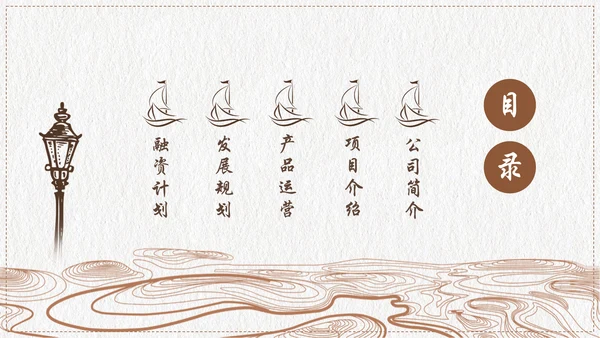 目录
公司简介
项目介绍
产品运营
发展规划
融资计划